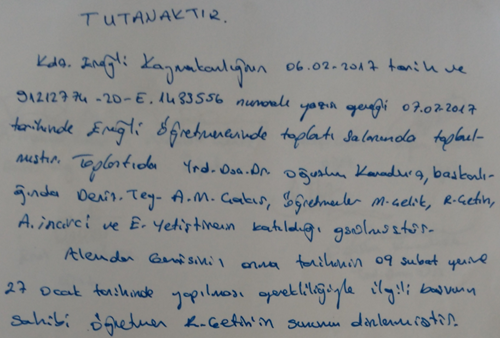 TUTANAKTIR.
Kdz. Ereğli Kaymakamlığının 06.02-2017 tarih ve
91212774-20-E.1433556 numaralı yazısı gereği 07.02.2017
tarihinde Ereğli Öğretmenevinde toplantı salonunda toplan-
mıştır. Toplantıda Yrd. Doç. Dr. Oğuzhan başkanlı-
ğında Deniz. Tğy. A.M. Çakır, öğretmenler M. Çelik, R. Çetin,
A. incirci ve E. Yetiştiren katıldığı görülmüştür.
Alemdar Gemisinin anma tarihinin 09 şubat yerine
27 Ocak tarihinde yapılması gerekliliğiyle ilgili başvuru
sahibi öğretmen R. Çetin'in sunumu dinlenmiştir.